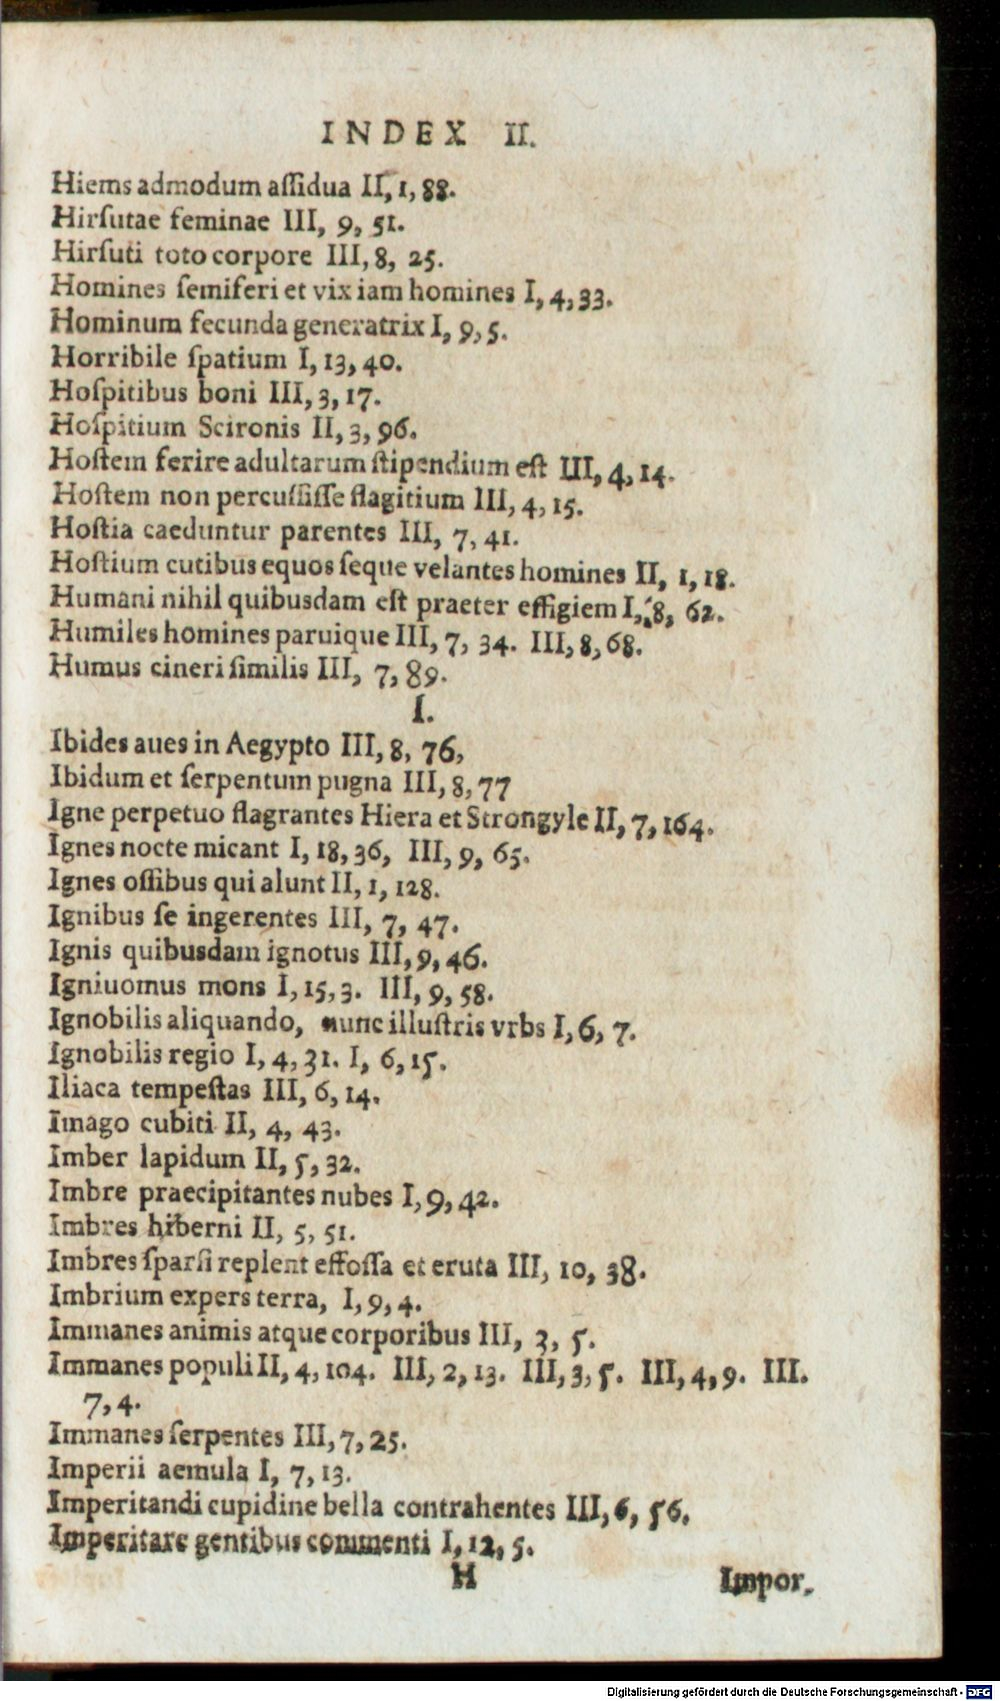 INDEX II.
Hiems admodum aſſidua II, 1, 88.
Hirſutae feminae III, 9, 51.
Hirſuti toto corpore III, 8, 25.
Homines ſemiferi et vix iam homines I, 4, 33.
Hominum fecunda generatrix I, 9, 5.
Horribile ſpatium I, 13, 40.
Hoſpitibus boni III, 3, 17.
Hoſpitium Scironis II, 3, 96.
Hoſtem ferire adultarum ſtipendium eſt III, 4, 14.
Hoſtem non percuſſiſſe flagitium III, 4, 15.
Hoſtia caeduntur parentes III, 7, 41.
Hoſtium cutibus equos ſeque velantes homines II, 1, 18.
Humani nihil quibusdam eſt praeter effigiem I, 8, 62.
Humiles homines paruique III, 7, 34. III, 8, 68.
Humus cineri ſimilis III, 7, 89.
I.
Ibides aues in Aegypto III, 8, 76,
Ibidum et ſerpentum pugna III, 8, 77
Igne perpetuo flagrantes Hiera et Strongyle II, 7, 164.
Ignes nocte micant I, 18, 36, III, 9, 65.
Ignes oſſibus qui alunt II, 1, 128.
Ignibus ſe ingerentes III, 7, 47.
Ignis quibusdam ignotus III, 9, 46.
Igniuomus mons I, 15, 3. III, 9, 58.
Ignobilis aliquando, nunc illuſtris vrbs I, 6, 7.
Ignobilis regio I, 4, 31. I, 6, 15.
Iliaca tempeſtas III, 6, 14.
Imago cubiti II, 4, 43.
Imber lapidum II, 5, 32.
Imbre praecipitantes nubes I, 9, 42.
Imbres hiberni II, 5, 51.
Imbres ſparſi replent effoſſa et eruta III, 10, 38.
Imbrium expers terra, I, 9, 4.
Immanes animis atque corporibus III, 3, 5.
Immanes populi II, 4, 104. III, 2, 13. III, 3, 5. III, 4, 9. III.
7, 4.
Immanes ſerpentes III, 7, 25.
Imperii aemula I, 7, 13.
Imperitandi cupidine bella contrahentes III, 6, 56.
Imperitare gentibus commenti I, 12, 5.
H Impor.
Digitalisierung gefördert durch die Deutsche Forschungsgemeinschaft - DFG